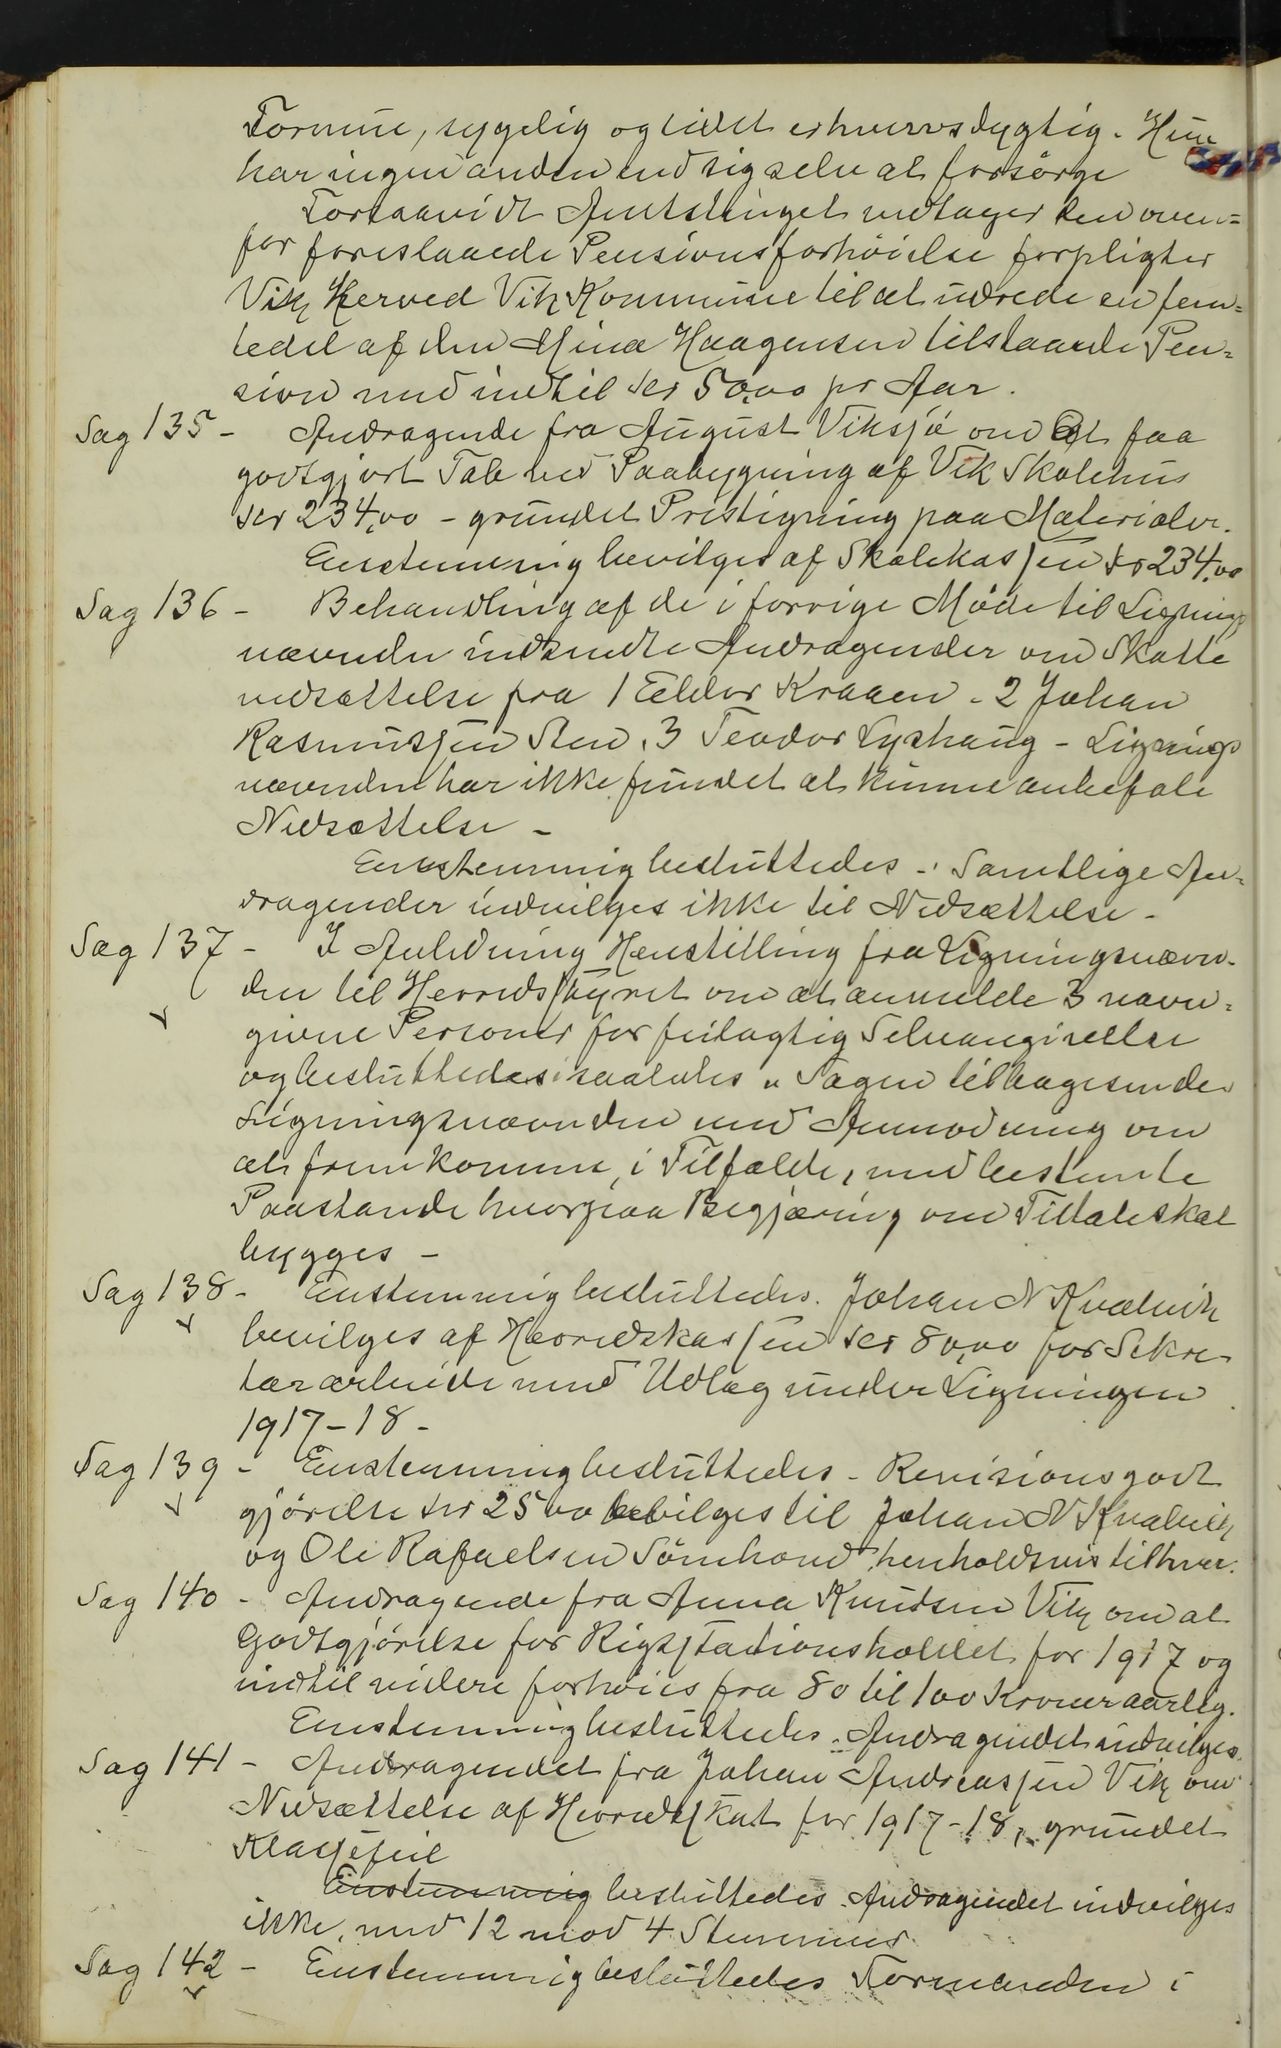 Formue, sygelig og lidet erhvervsdygtig. Hun
har ingen anden end sig selv at forsørge
Forsaavidt Amtstinget vedtager den oven=
for foreslaaede Pensionsforhöielse forpligter
Vik Herved Vik Kommune til at udrede en fem=
tedel af den Mina Haagensen tilstaaede Pen=
sion med indtil Kr 50,00 pr Aar.
Sag 135 - Andragende fra August Viksjö om at faa
godtgjort Tab ved Paabygning af Vik Skolehus
Kr 234,00 - grundet Prisstigning paa Materialer.
Enstemmig bevilges af Skolekassen Kr 234,00
Sag 136 - Behandling af de i forrige Møde til Lignings
nævnden indsendte Andragender om Skatte
nedsættelse fra 1 Eddor Kraaen - 2 Johan
Rasmussen Sten. 3 Teodor Lyshaug - Lignings
nævnden har ikke fundet at kunne anbefale
Nedsættelse -
Enstemmig besluttedes - Samtlige An=
dragender indvilges ikke til Nedsættelse -
Sag 137 - I Anledning Henstilling fra Ligningsnævn-
den til Herredsstyret om at anmelde 3 navn=
givne Personer for feilagtig Selvangivelse
og besluttedes saaledes " Sagen tilbagesendes
Ligningsnævnden med Anmodning om
at fremkomme, i Tilfælde, med bestemte
Paastande hvorpaa Begjæring om Tiltale skal
bygges -
Sag 138 - Enstemmig besluttedes. Johan N Kvalvik
bevilges af Herredskassen Kr 80,00 for Sekre-
tærarbeide med Udlæg under Ligningen
1917-18 -
Sag 139 - Enstemmig besluttedes - Revisionsgodt
gjörelse Kr 25 00 bevilges til Johan N Kvalvik
og Ole Rafaelsen Sömhovd henholdsvis til hver.
Sag 140 - Andragende fra Anna Knudsen Vik om at
Godtgjörelse for Rigsstationsholdet for 1917 og
indtil videre forhöies fra 80 til 100 Kroner aarlig.
Enstemmig besluttedes. Andragendet indvilges.
Sag 141 - Andragendet fra Johan Andreassen Vik om
Nedsættelse af Herredsskat for 1917-18, grundet
Klassefeil
Enstemmig besluttedes. Andragendet indvilges
ikke, med 12 mod 4 Stemmer.
Sag 142 - Enstemmig besluttedes Formanden i